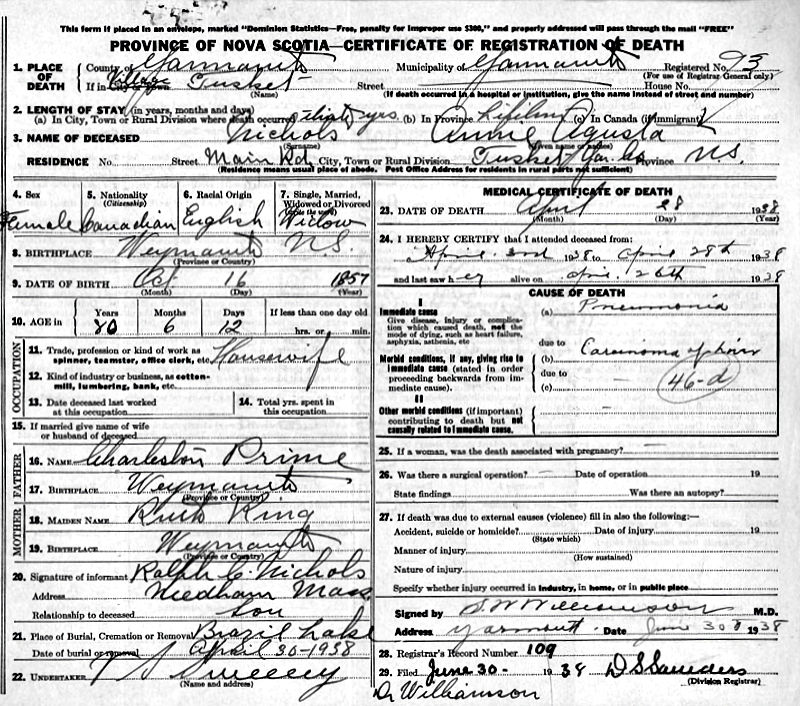 This form if placed in an envelope, marked "Dominion Statistics—Free, penalty for improper use $300," and properly addressed will pass through the mail "FREE"
PROVINCE OF NOVA SCOTIA—CERTIFICATE OF REGISTRATION OF DEATH
1. PLACE OF DEATH County of Yarmouth Municipality of Yarmouth Registered No. 93
(For use of Registrar General only)
If in Village Tusket Street House No.
(Name) (If death occurred in a hospital or institution, give the name instead of street and number)
2. LENGTH OF STAY (in years, months and days)
(a) In City, Town or Rural Division where death occurred thirty yrs. (b) In Province Lifetime (c) In Canada (if immigrant)
3. NAME OF DECEASED Nichols Annie Agusta
(Surname) (Given name or names)
RESIDENCE No. Street Main Rd. City, Town or Rural Division Tusket Yar. Co. Province N.S.
(Residence means usual place of abode. Post Office Address for residents in rural parts not sufficient)
4. Sex 5. Nationality (Citizenship) 6. Racial Origin 7. Single, Married, Widowed or Divorced
Female Canadian English Widow
8. BIRTHPLACE Weymouth N.S.
(Province or Country)
9. DATE OF BIRTH Oct 16 1857
(Month) (Day) (Year)
10. AGE in Years Months Days If less than one day old
80 6 12 hrs. or min.
OCCUPATION
11. Trade, profession or kind of work as spinner, teamster, office clerk, etc. Housewife
12. Kind of industry or business, as cotton-mill, lumbering, bank, etc.
13. Date deceased last worked at this occupation 14. Total yrs. spent in this occupation
15. If married give name of wife or husband of deceased
FATHER
16. NAME Charleston Prime
17. BIRTHPLACE Weymouth
(Province or Country)
MOTHER
18. MAIDEN NAME Ruth King
19. BIRTHPLACE Weymouth
(Province or Country)
20. Signature of informant Ralph C. Nichols
Address Needham Mass
Relationship to deceased Son
21. Place of Burial, Cremation or Removal Brazil Lake
Date of burial or removal April 30-1938
22. UNDERTAKER Sweeny
(Name and address)
MEDICAL CERTIFICATE OF DEATH
23. DATE OF DEATH April 28 1938
(Month) (Day) (Year)
24. I HEREBY CERTIFY that I attended deceased from:
April 2nd 1938 to April 28th 1938
and last saw her alive on April 26th 1938
CAUSE OF DEATH
I
Immediate cause (a) Pneumonia
Give disease, injury or complication which caused death, not the mode of dying, such as heart failure, asphyxia, asthenia, etc
due to
Morbid conditions, if any, giving rise to immediate cause (stated in order proceeding backwards from immediate cause). (b) Carcinoma of liver
due to
(c) —
46-d
II
Other morbid conditions (if important) contributing to death but not causally related to immediate cause. —
25. If a woman, was the death associated with pregnancy? —
26. Was there a surgical operation? — Date of operation 19
State findings Was there an autopsy?
27. If death was due to external causes (violence) fill in also the following:—
Accident, suicide or homicide? Date of injury 19
(State which)
Manner of injury
(How sustained)
Nature of injury
Specify whether injury occurred in industry, in home, or in public place
Signed by S. W. Williamson M.D.
Address Yarmouth. Date June 30th 1938
28. Registrar's Record Number 109
29. Filed June 30- 1938 D S Saunders
(Division Registrar)
Dr Williamson